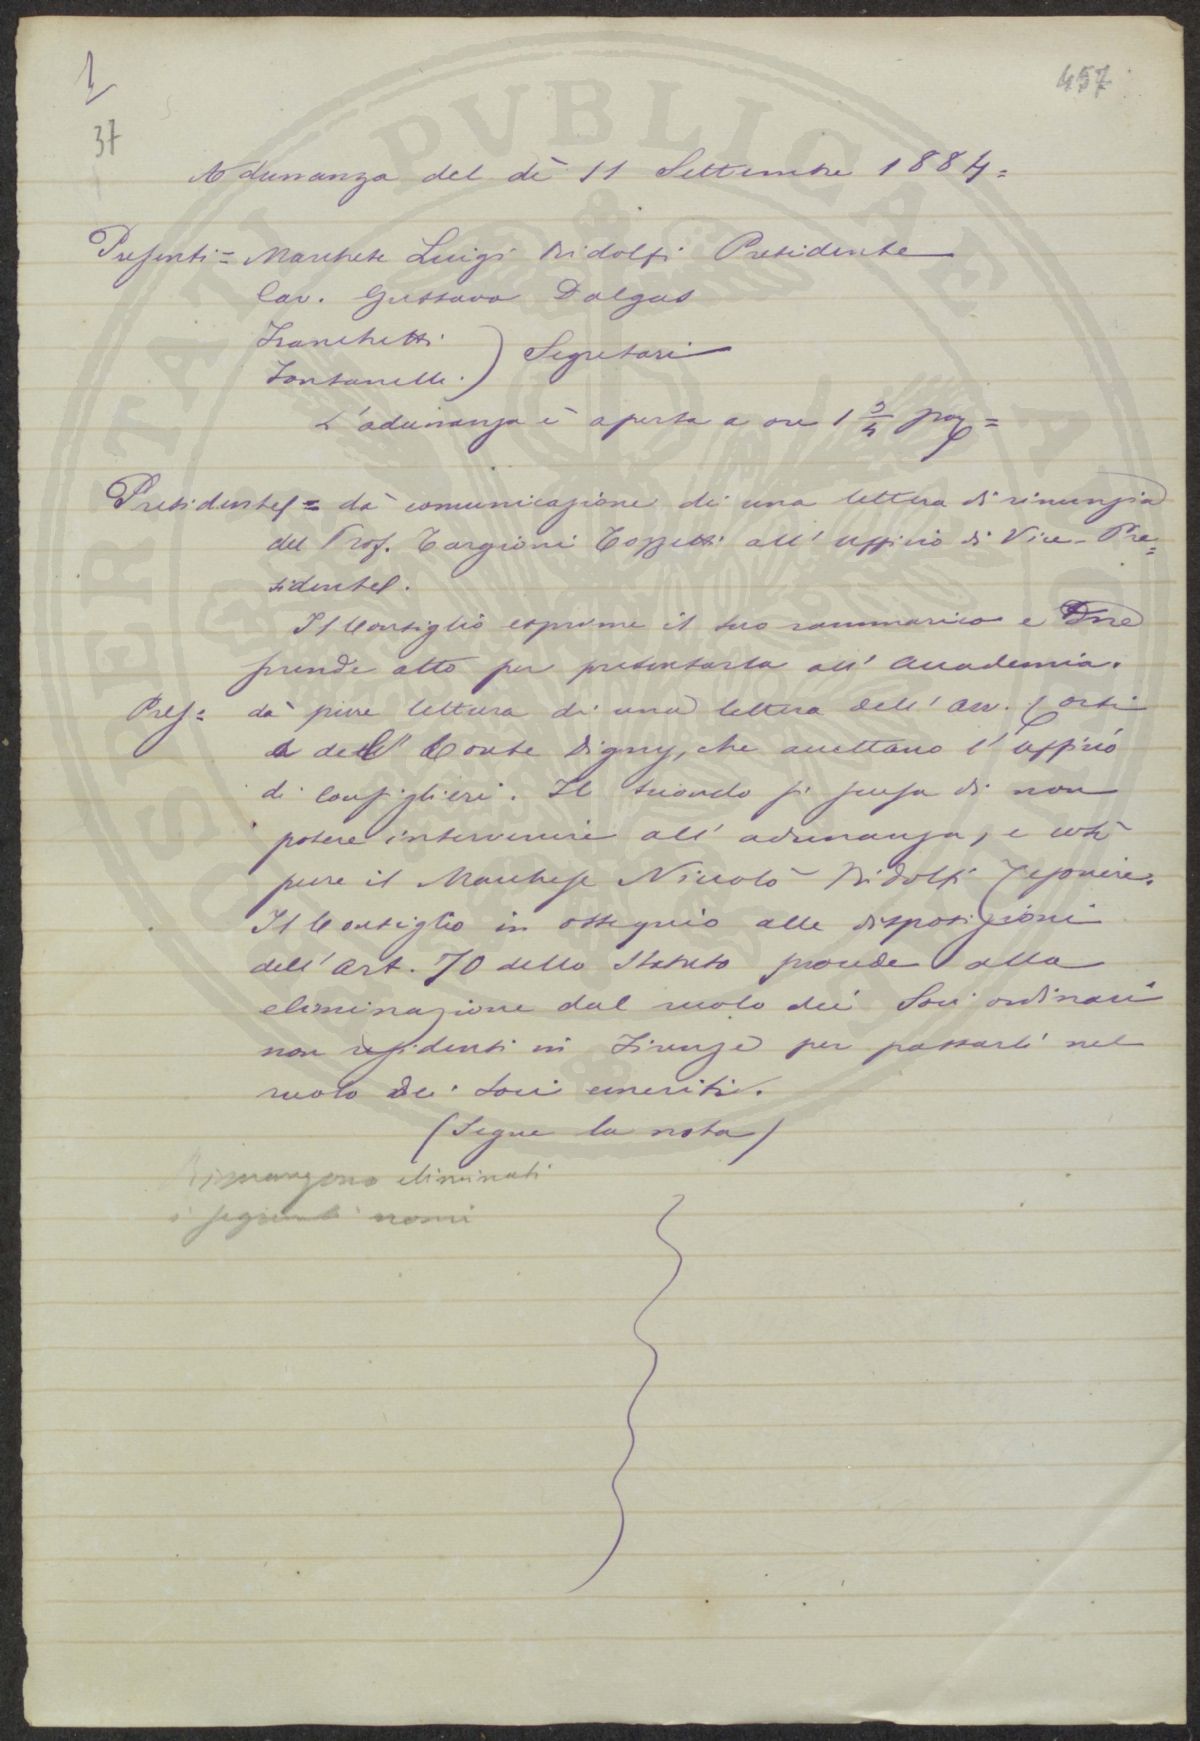 457
37
Adunanza del dì 11 Settembre 1884=
Presenti= Marchese Luigi Ridolfi Presidente
Cav. Gustavo Dalgas
Franchetti
Fontanelli ) Segretari
L'adunanza è aperta a ore 1 3/4 pom=
Presidente= dà comunicazione di una lettera di rinunzia
del Prof. Targioni Tozzetti all'ufficio di Vice-Pre=
sidente.
Il Consiglio esprime il suo rammarico e ne
prende atto per presentarla all'Accademia.
Pres= dà pure lettura di una lettera dell'Avv. Corsi
e del Conte Digny, che accettano l'ufficio
di Consiglieri. Il secondo si scusa di non
potere intervenire all'adunanza, e così
pure il Marchese Niccolò Ridolfi Tesoriere.
Il Consiglio in ossequio alle disposizioni
dell'Art. 70 dello Statuto procede alla
eliminazione dal ruolo dei Soci ordinari
non residenti in Firenze per passarli nel
ruolo dei Soci emeriti.
(Segue la nota)
Rimangono eliminati
i seguenti nomi